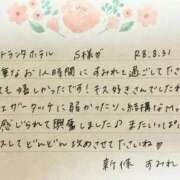 トランタホテル S様♂ R8.8.31
華なお1人時間にすみれと過ごしてさ
も嬉しかったです!キス好きさんでしたね
ェザータッチに弱かったり、結構なMっ
感じられて興奮しました♪またいっぱい
スしてどんどん攻めさせて下さいね♡
新條 すみれ